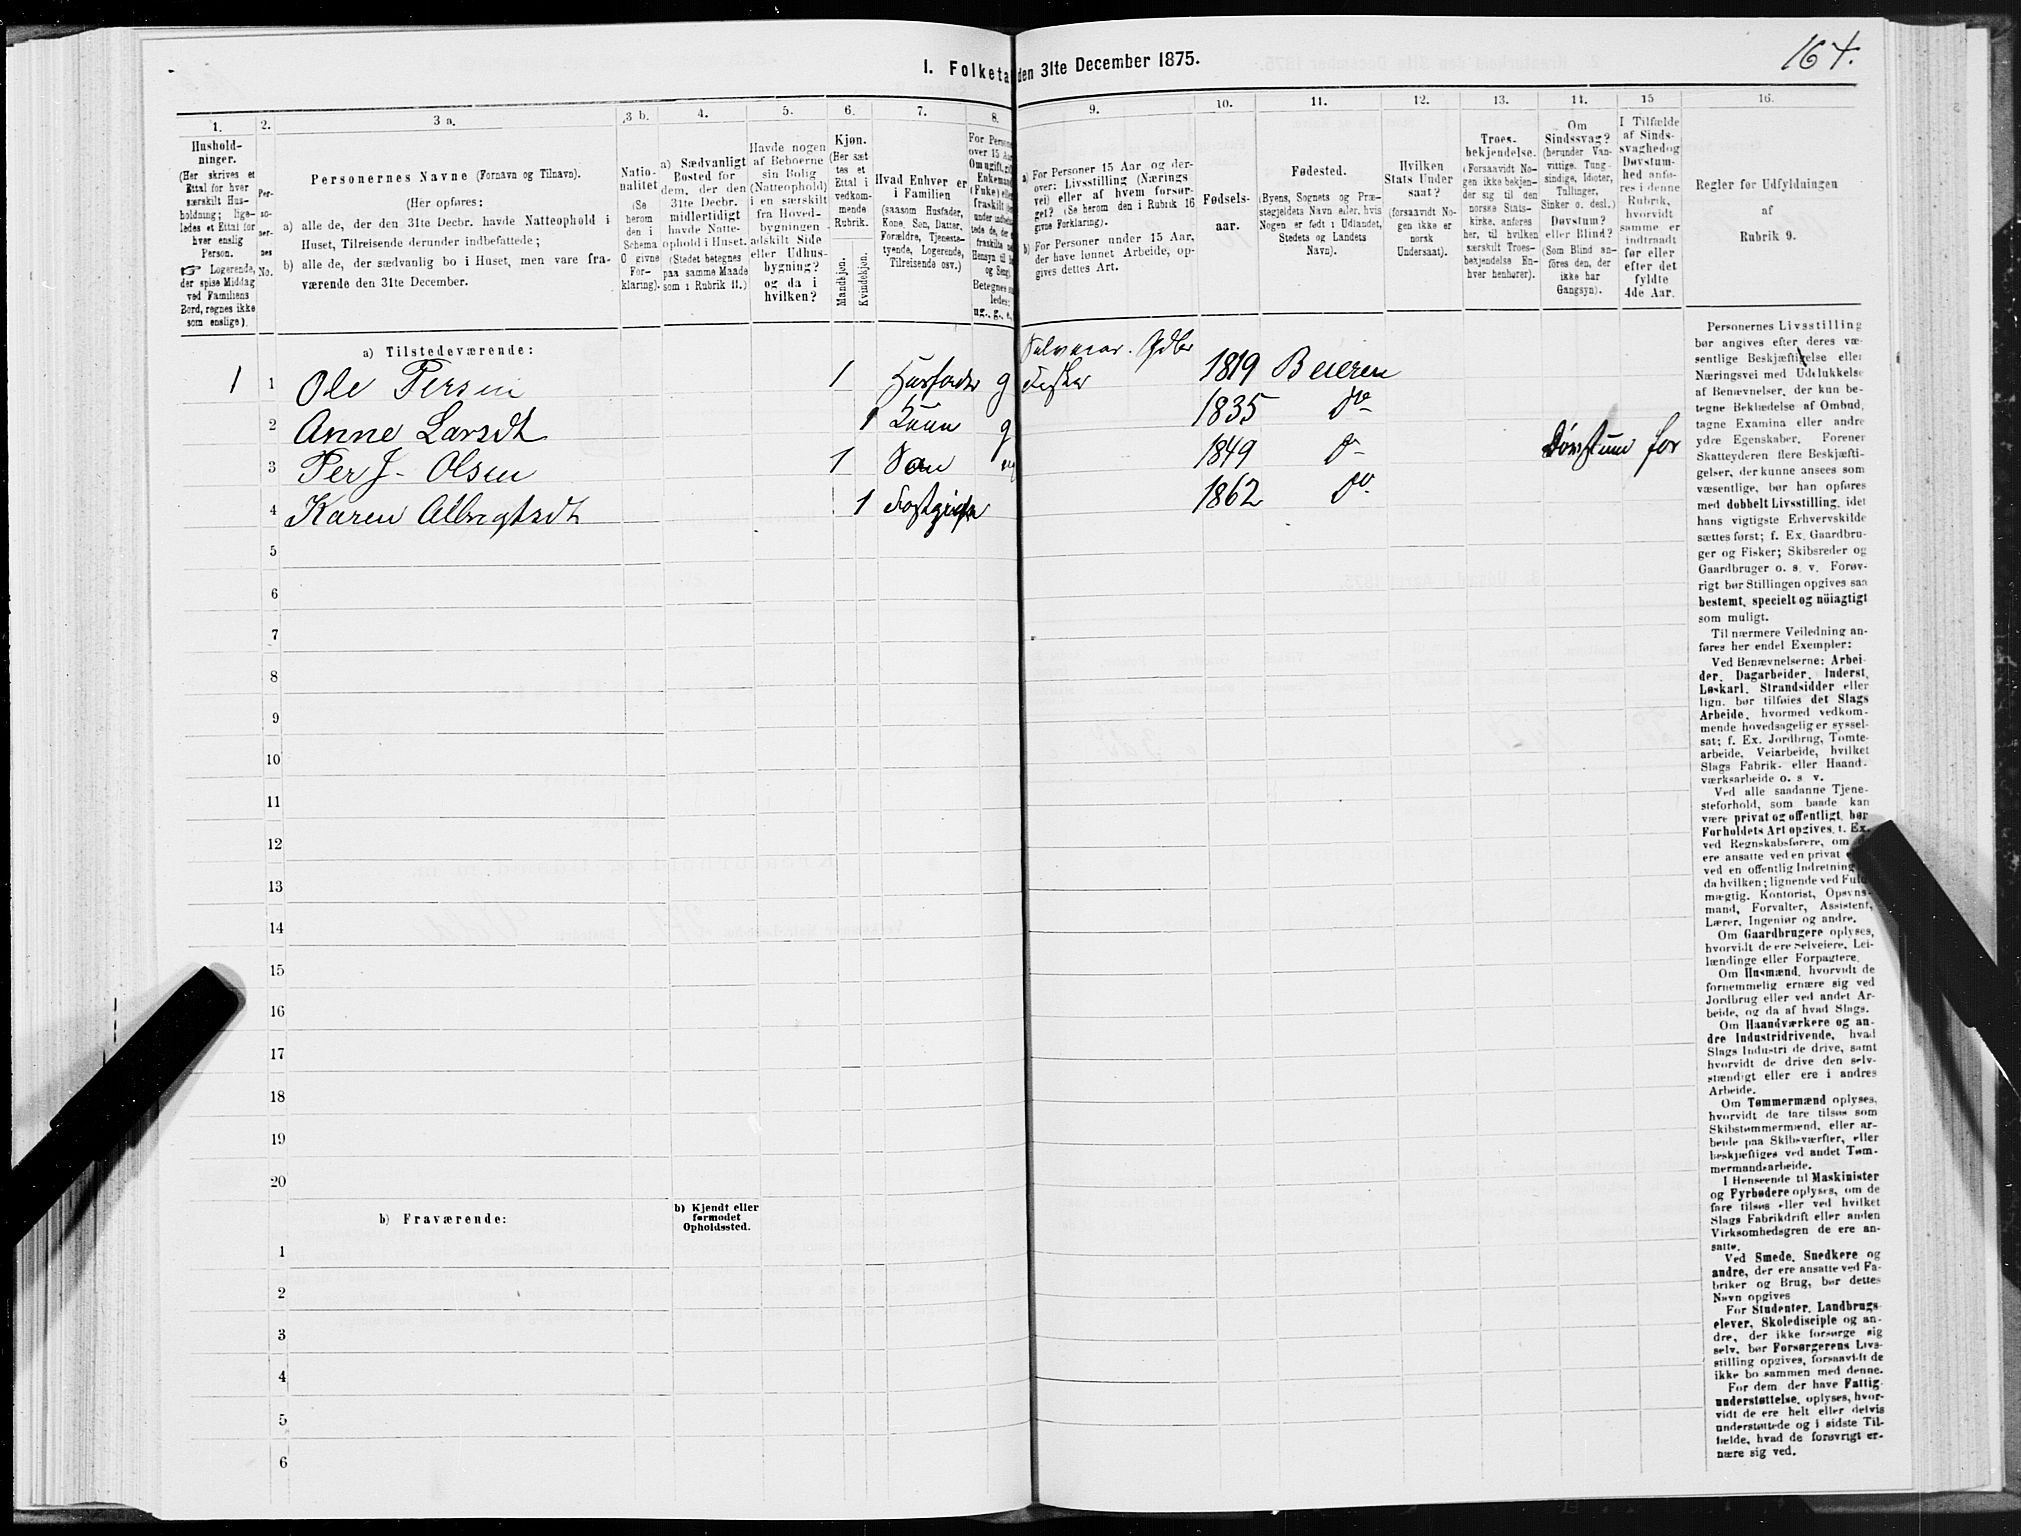 164.
I. Folketa den 31te December 1875.
1. 2. 3 a. 3 b. 4. 5. 6. 7. 8. 9. 10. 11. 12. 13. 14. 15 16.
Hushold-
ninger.
(Her skrives et
Ettal for hver
særskilt Hus-
holdning; lige-
ledes et Ettal for
hver enslig
Person.
☞ Logerende,
der spise Middag
ved Familiens
Bord, regnes ikke
som enslige).
Per-
so-
ner-
nes
No.
Personernes Navne (Fornavn og Tilnavn).
(Her opføres:
a) alle de, der den 31te Decbr. havde Natteophold i
Huset, Tilreisende derunder indbefattede;
b) alle de, der sædvanlig bo i Huset, men vare fra-
værende den 31te December.
Natio-
nalitet
(Se
herom
den i
Schema
O givne
For-
klaring).
a) Sædvanligt
Bosted for
dem, der den
31te Decbr.
midlertidigt
havde Natte-
ophold i Huset.
(Stedet betegnes
paa samme Maade
som i Rubrik 11.)
Havde nogen
af Beboerne
sin Bolig
(Natteophold)
i en særskilt
fra Hoved-
bygningen
adskilt Side
eller Udhus-
bygning?
og da i
hvilken?
Kjøn.
(Her sæt
tes et
Ettal i
vedkom-
mende
Rubrik.
Mandkjøn.
Kvindekjøn.
Hvad Enhver er
i Familien
(saasom Husfader,
Kone, Søn, Datter,
Forældre, Tjeneste-
tyende, Logerende,
Tilreisende osv.)
For Person
over 15 Aa
Om ugift, gi
Enkeman
(Fuke) elle
fraskilt
under indbe
tede de, der
fraskilte
Hensyn til b
og Seng
Betegnes
ledes:
ug., g., e.,
a) For Personer 15 Aar og der-
over: Livsstilling (Nærings
vei) eller af hvem forsør-
get? (Se herom den i Rubrik 16
givne Forklaring).
b) For Personer under 15 Aar,
der have lønnet Arbeide, op-
gives dettes Art.
Fødsels-
aar.
Fødested.
(Byens, Sognets og Præ-
stegjeldets Navn eller, hvis
Nogen er født i Udlandet,
Stedets og Landets
Navn).
Hvilken
Stats Under
saat?
(forsaavidt No-
gen ikke er
norsk
Undersaat).
Troes-
bekjendelse.
(Forsaavidt No-
gen ikke bekjen-
der sig til den
norske Stats-
kirke, anføres
her, til hvilken
særskilt Troes-
bekjendelse En-
hver henhører).
Om
Sindssvag?
(herunder Van-
vittige, Tung-
sindige, Idioter,
Tullinger,
Sinker o. desl.)
Døvstum?
eller Blind?
(Som Blind an-
føres den, der
ikke har
Gangsyn).
I Tilfælde
af Sinds-
svaghed og
Døvstum-
hed anfø-
res i denne
Rubrik,
hvorvidt
samme er
indtraadt
før eller
efter det
fyldte
4de Aar.
Regler for Udfyldningen
af
Rubrik 9.
a) Tilstedeværende:
1 1 Ole Persen 1 Husfader g Selveier. Gdbr Fisker 1819 Beieren
2 Anne Larsdt 1 Kone g 1835 Do
3 Per J. Olsen 1 Søn ug 1849 Do Døvstum før
4 Karen Albrigtsdt 1 1862 Do
5
6
7
8
9
10
11
12
13
14
15
16
17
18
19
20
b) Fraværende:
b) Kjendt eller
formodet
Opholdssted.
1
2
3
4
5
6
Personernes Livsstilling
bør angives efter deres væ-
sentlige Beskjæftigelse eller
Næringsvei med Udelukkelse
af Benævnelser, der kun be-
tegne Beklædelse af Ombud,
tagne Examina eller andre
ydre Egenskaber. Forener
Skatteyderen flere Beskjæfti-
gelser, der kunne ansees som
væsentlige, bør han opføres
med dobbelt Livsstilling, idet
hans vigtigste Erhvervskilde
sættes først; f. Ex. Gaardbru-
ger og Fisker; Skibsreder og
Gaardbruger o. s. v. Forøv-
rigt bør Stillingen opgives saa
bestemt, specielt og nöiagtigt
som muligt.
Til nærmere Veiledning an-
føres her endel Exempler:
Ved Benævnelserne: Arbei-
der, Dagarbeider, Inderst,
Løskarl, Strandsidder eller
lign. bør tilføies det Slags
Arbeide, hvormed vedkom-
mende hovedsagelig er syssel-
sat; f. Ex. Jordbrug, Tomte-
arbeide, Veiarbeide, hvilket
Slags Fabrik- eller Haand-
værksarbeide o. s v.
Ved alle saadanne Tjene-
steforhold, som baade kan
være privat og offentligt, bør
Forholdets Art opgives, t. Ex.
ved Regnskabsførere, om
ere ansatte ved en privat
ved en offentlig Indretning
da hvilken; lignende ved Fuld
mægtig, Kontorist, Opsyns-
mand, Forvalter, Assistent,
Lærer, Ingeniør og andre.
Om Gaardbrugere oplyses,
hvorvidt de ere Selveiere, Lei-
lændinge eller Forpagtere.
Om Husmænd, hvorvidt de
fornemmelig ernære sig ved
Jordbrug eller ved andet Ar-
beide, og da af hvad Slags.
Om Haandværkere og an-
dre Industridrivende, hvad
Slags Industri de drive, samt
hvorvidt de drive den selv-
stændigt eller ere i andres
Arbeide.
Om Tømmermænd oplyses,
hvorvidt de fare tilsøs som
Skibstømmermænd, eller ar-
beide paa Skibsværfter, eller
beskjæftiges ved andet Tøm-
mermandsarbeide.
I Henseende til Maskinister
og Fyrbødere oplyses, om de
fare tilsøs eller ved hvilket
Slags Fabrikdrift eller anden
Virksomhedsgren de ere an-
satte.
Ved Smede, Snedkere og
andre, der ere ansatte ved Fa-
briker og Brug, bør dettes
Navn opgives
For Studenter, Landbrugs-
elever, Skoledisciple og an-
dre, der ikke forsørge sig
selv, bør Forsørgerens Livs-
stilling opgives, forsaavidt de
ikke bo sammen med denne.
For dem der have Fattig-
understøttelse, oplyses, hvor-
vidt de ere helt eller delvis
understøttede og i sidste Til-
fælde, hvad de forøvrigt er-
nære sig ved.